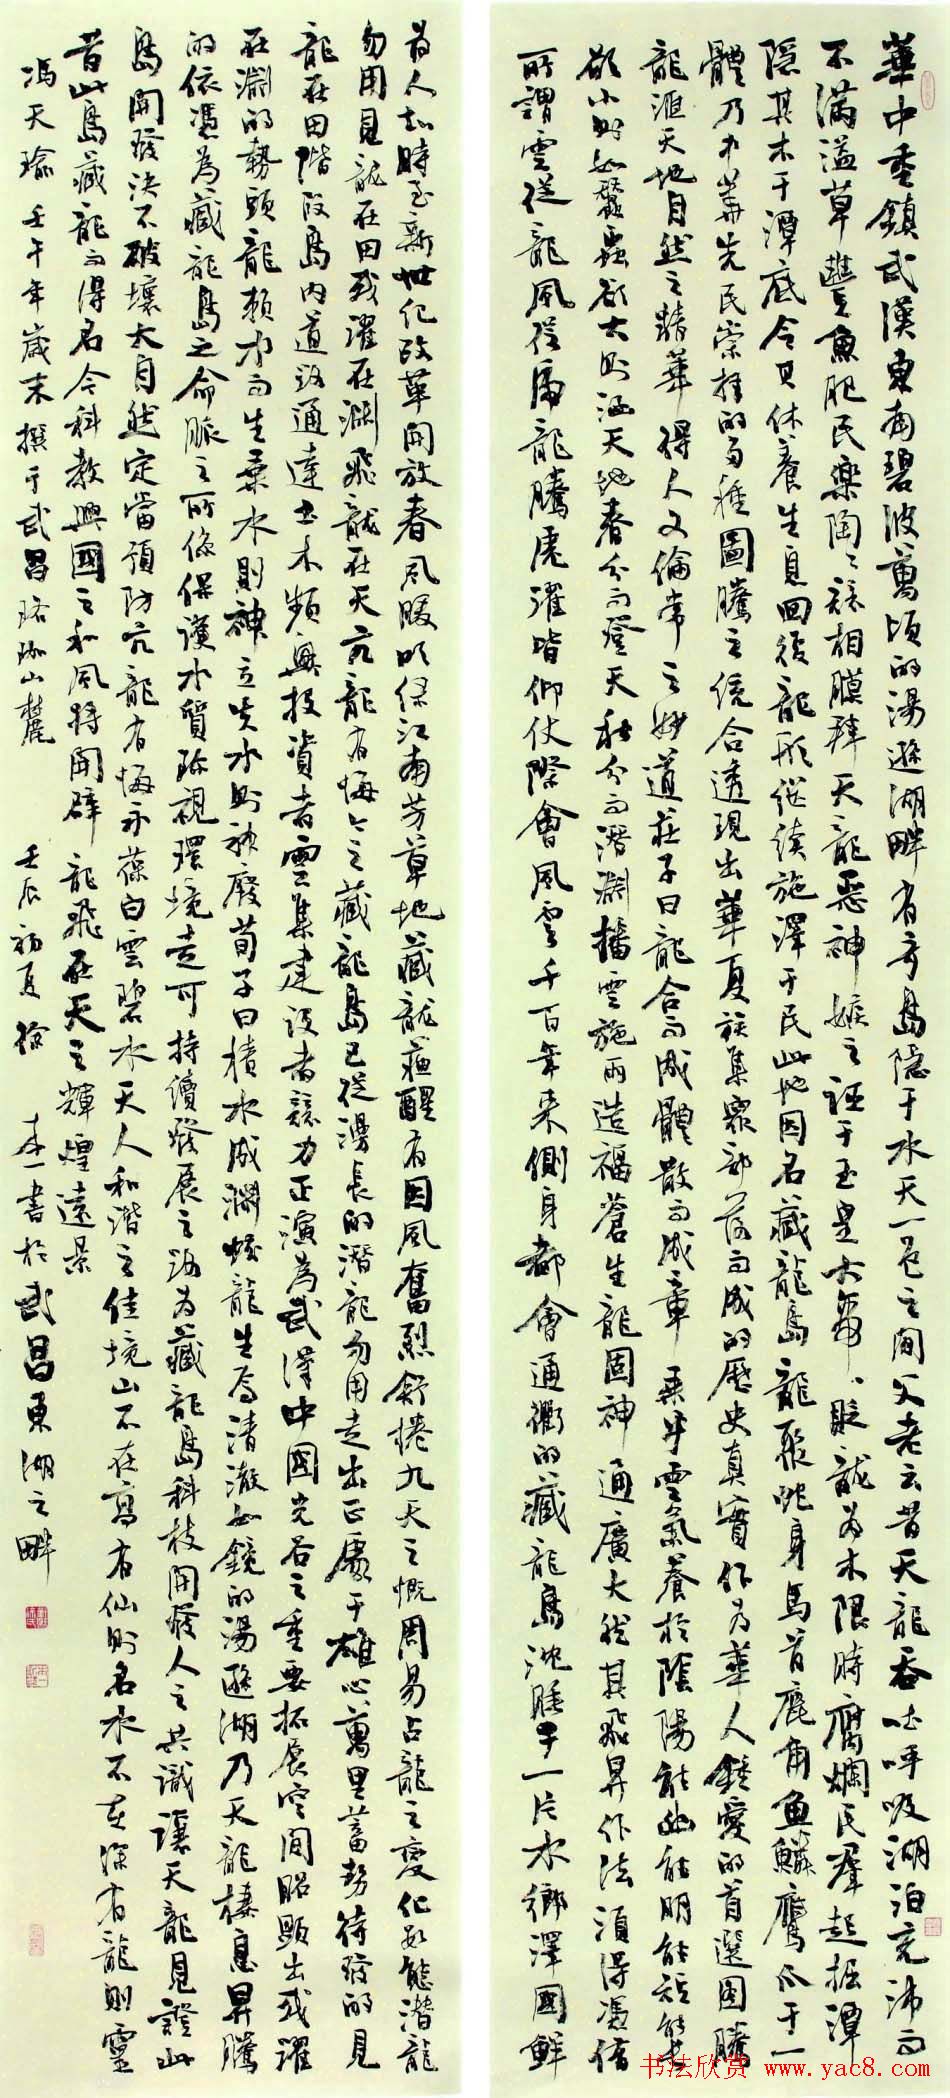 華中重鎮武漢東南碧波萬頃的湯遜湖畔有奇島隱于水天一色之間父老云昔天龍吞吐呼吸湖泊充沛而
不滿溢草豐魚肥民樂陶々競相膜拜天龍惡神嫉之誣于玉皇大帝貶龍為木限時腐爛民羣起掘潭
隱其木于潭底令其休養生息回復龍形繼續施澤于民此地因名藏龍島龍聚蛇身馬首鹿角魚鱗鷹爪于一
體乃中華先民崇拜的多種圖騰之綜合透現出華夏族集衆部落而成的歷史真實作為華人鍾愛的首選圖騰
龍滙天地自然之精華得人文倫常之妙道莊子曰龍合而成體散而成章乘乎雲氣養於陰陽能幽能明能短能長
欲小則如蠶蟲欲大則洒天地春分而登天秋分而潛淵播雲施雨造福蒼生龍固神通廣大然其飛昇作法須得憑借
所謂雲從龍風從虎龍騰虎躍皆仰仗際會風雲千百年來側身都會通衢的藏龍島沈睡于一片水鄉澤國鮮
為人知時至新世紀改革開放春風暖吹綠江南芳草地藏龍蘇醒有因風奮烈舒捲九天之慨周易占龍之變化數態潛龍
勿用見龍在田或躍在淵飛龍在天亢龍有悔今之藏龍島已從漫長的潛龍勿用走出正處于雄心萬里蓄勢待發的見
龍在田階段島內道路通達土木頻興投資者雲集建設者競力正演為武漢中國光谷之重要拓展空間昭顯出或躍
在淵的勢頭龍賴水而生乘水則神立失水則神廢荀子曰積水成淵蛟龍生焉清澈如鏡的湯遜湖乃天龍棲息昇騰
的依憑為藏龍島之命脈之所係保護水質珍視環境走可持續發展之路为藏龍島科技開發人之共識讓天龍見證此
島開發決不破壞大自然定當預防亢龍有悔永葆白雲碧水天人和諧之佳境山不在高有仙則名水不在深有龍則靈
昔此島藏龍而得名今科教興國之和風將開闢龍飛在天之輝煌遠景
馮天瑜 壬午年歲末撰于武昌珞珈山麓 壬辰初夏徐本一書於武昌東湖之畔
书法欣赏 www.yac8.com